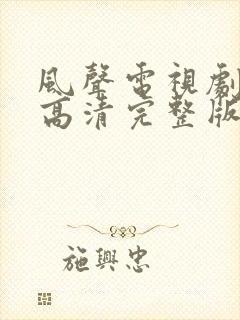 風聲電視劇
高清完整版
施興忠